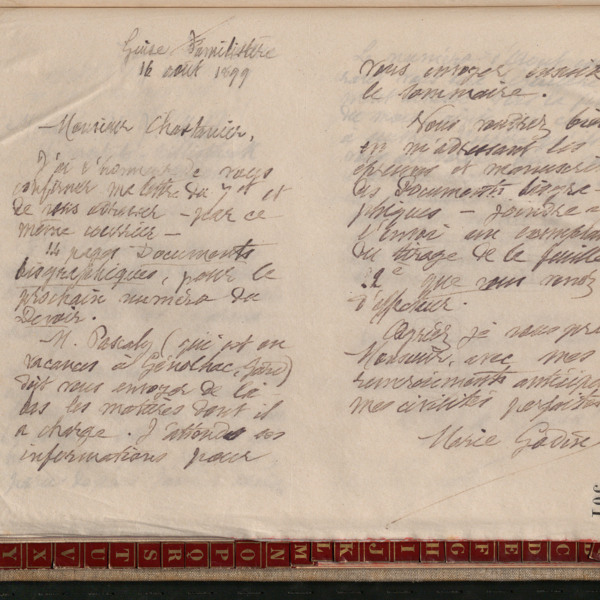 Guise Familistère
16 août 1899
Monsieur Chastanier,
J'ai l'honneur de vous
confirmer ma lettre du 7 et et
de vous adresser - par ce
même courrier -
14 pages Documents
biographiques, pour le
prochain numéro du
Devoir.
M. Pascaly (qui est en
vacances à Génolhac, Gard)
doit vous envoyer de là
bas les matières dont il
a charge. J'attends ses
informations pour
vous envoyer ensuite
le sommaire.
Vous voudrez bien
en m'adressant les
épreuves et manuscrits
des Documents biogra-
phiques - joindre à
l'envoi un exemplaire
du tirage de la feuille
22e que vous venez
d'effectuer.
Agréez je vous prie
Monsieur, avec mes
remerciements anticipés
mes civilités parfaites
Marie Godin
106
Y X V U T S R Q P O N M L K J I H G F E D C B